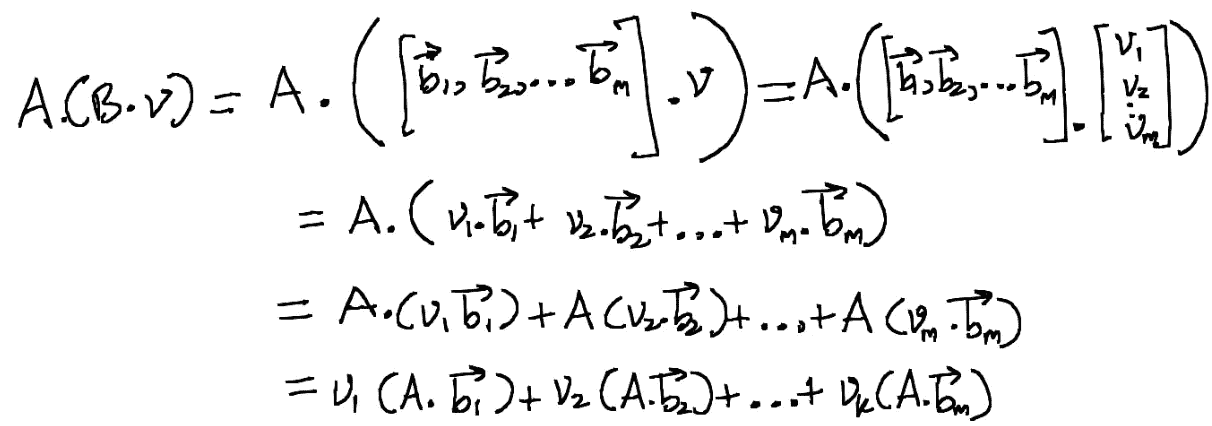 A.(B.v) = A . ([b⃗₁, b⃗₂, ... b⃗ₘ] . v) = A . ([b⃗₁, b⃗₂, ... b⃗ₘ] . [v₁ v₂ ⋮ vₘ])
= A. (v₁.b⃗₁ + v₂.b⃗₂ + ... + vₘ.b⃗ₘ)
= A.(v₁b⃗₁) + A(v₂.b⃗₂) + ... + A(vₘ.b⃗ₘ)
= v₁(A.b⃗₁) + v₂(A.b⃗₂) + ... + vₖ(A.b⃗ₘ)